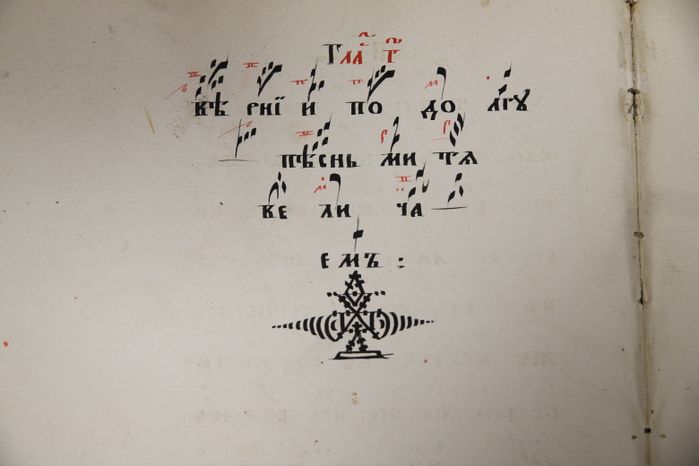 вѣ рнїи по до лгу
пѣснь ми тя
ве ли ча
емъ: